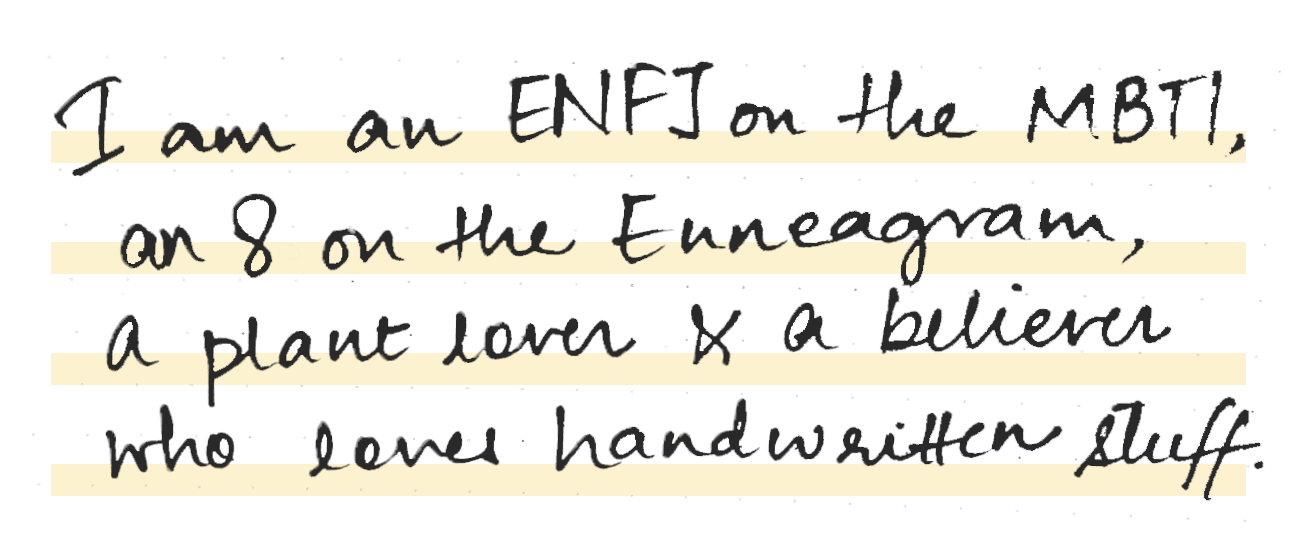 I am an ENFJ on the MBTI,
an 8 on the Enneagram,
a plant lover & a believer
who loves handwritten stuff.